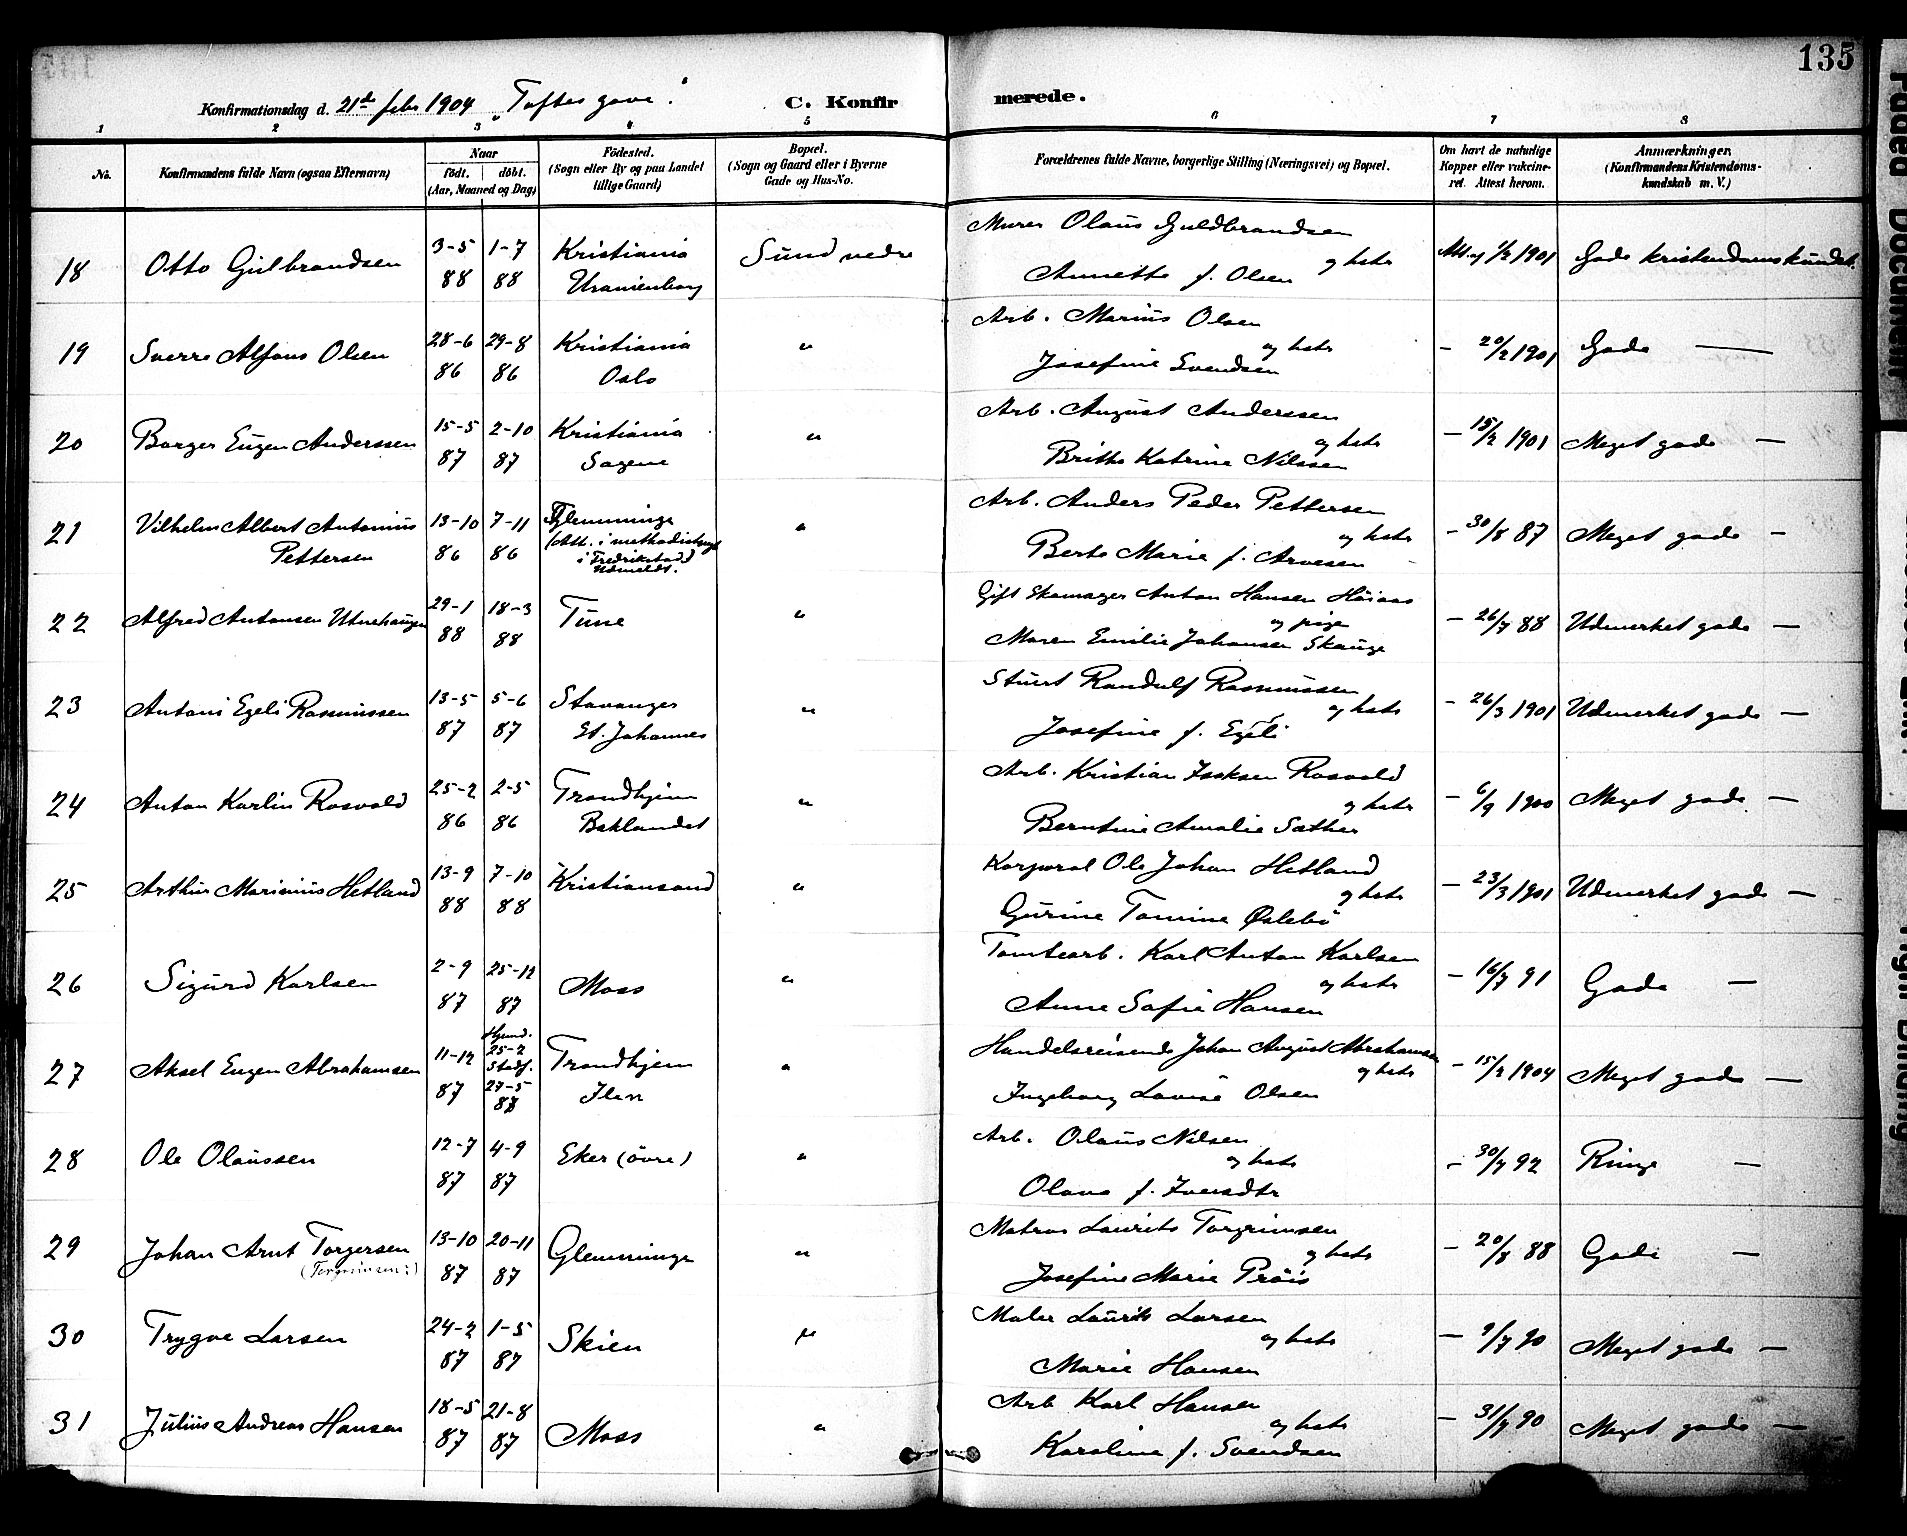 135
Konfirmationsdag d. 21de febr 1904 "Toftes gave".
C. Konfirmerede.
1 2 3 4 5 6 7 8
No.
Konfirmandens fulde Navn (ogsaa Efternavn)
Naar
födt. döbt.
(Aar, Maaned og Dag)
Födested.
(Sogn eller By og paa Landet
tillige Gaard)
Bopæl.
(Sogn og Gaard eller i Byerne
Gade og Hus-No.
Forældrenes fulde Navne, borgerlige Stilling (Næringsvei) og Bopæl.
Om havt de naturlige
Kopper eller vakcine-
ret. Attest herom.
Anmærkninger.
(Konfirmandens Kristendoms-
kundskab m. V.)
18 Otto Gulbrandsen 3-5 88 1-7 88 Kristiania Uranienborg Sund nedre
Murer Olaus Guldbrandsen og hstr Annette f. Olsen
Att. af 1/2 1901 Gode kristendomskundsk.
19 Sverre Alfons Olsen 28-6 86 29-8 86 Kristiania Oslo "
Arb. Marius Olsen og hstr Josefine Svendsen
— 20/2 1901 Gode —
20 Borger Eugen Anderssen 15-5 87 2-10 87 Kristiania Sagene "
Arb. August Anderssen og hstr Britha Katrine Nilssen
— 15/2 1901 Meget gode —
21 Vilhelm Albert Antonius Pettersen 13-10 86 7-11 86 Glemminge (Att. i methodistmgt i Fredrikstad) Udmeldt. "
Arb. Anders Peder Pettersen og hstr Berte Marie f. Arvesen
— 30/8 87 Meget gode —
22 Alfred Antonsen Utnehaugen 29-1 88 18-3 88 Tune "
Gift Skomager Anton Hansen og pige Maren Emilie Johansen Skauge
— 26/7 88 Udmerket gode —
23 Antoni Egeli Rasmussen 13-5 87 5-6 87 Stavanger St. Johannes "
Stuert Randulf Rasmussen og hstr Josefine f. Egeli
— 26/3 1901 Udmerket gode —
24 Anton Karlin Rosvold 25-2 86 2-5 86 Trondhjem Baklandet "
Arb. Kristian Isaksen Rosvold og hstr Berntine Amalie Sæther
— 6/9 1900 Meget gode —
25 Arthur Marinius Hetland 13-9 88 7-10 88 Kristiansand "
Korporal Ole Johan Hetland og hstr Gurine Tomine Øslebö
— 23/3 1901 Udmerket gode —
26 Sigurd Karlsen 2-9 87 25-12 87 Moss "
Tomtearb. Karl Anton Karlsen og hstr Anne Sofie Hansen
— 16/7 91 Gode —
27 Aksel Eugen Abrahamsen 11-12 87 Hjemd. 25-2 Stadf. 27-5 88 Trondhjem Ilen "
Handelsreisende Johan August Abrahamsen og hstr Ingeborg Lovise Olsen
— 15/2 1904 Meget gode —
28 Ole Olaussen 12-7 87 4-9 87 Eker (övre) "
Arb. Olaus Nilsen og hstr Olava f. Iversdtr
— 30/7 92 Ringe —
29 Johan Arnt Torgersen (Torgrimsen:) 13-10 87 20-11 87 Glemminge "
Matros Laurits Torgrimsen og hstr Josefine Marie Pröis
— 20/8 88 Gode —
30 Trygve Larsen 24-2 87 1-5 87 Skien "
Maler Laurits Larsen og hstr Marie Hansen
— 9/7 90 Meget gode —
31 Julius Andreas Hansen 18-5 87 21-8 87 Moss "
Arb Karl Hansen og hstr Karoline f. Svendsen
— 31/7 90 Meget gode —